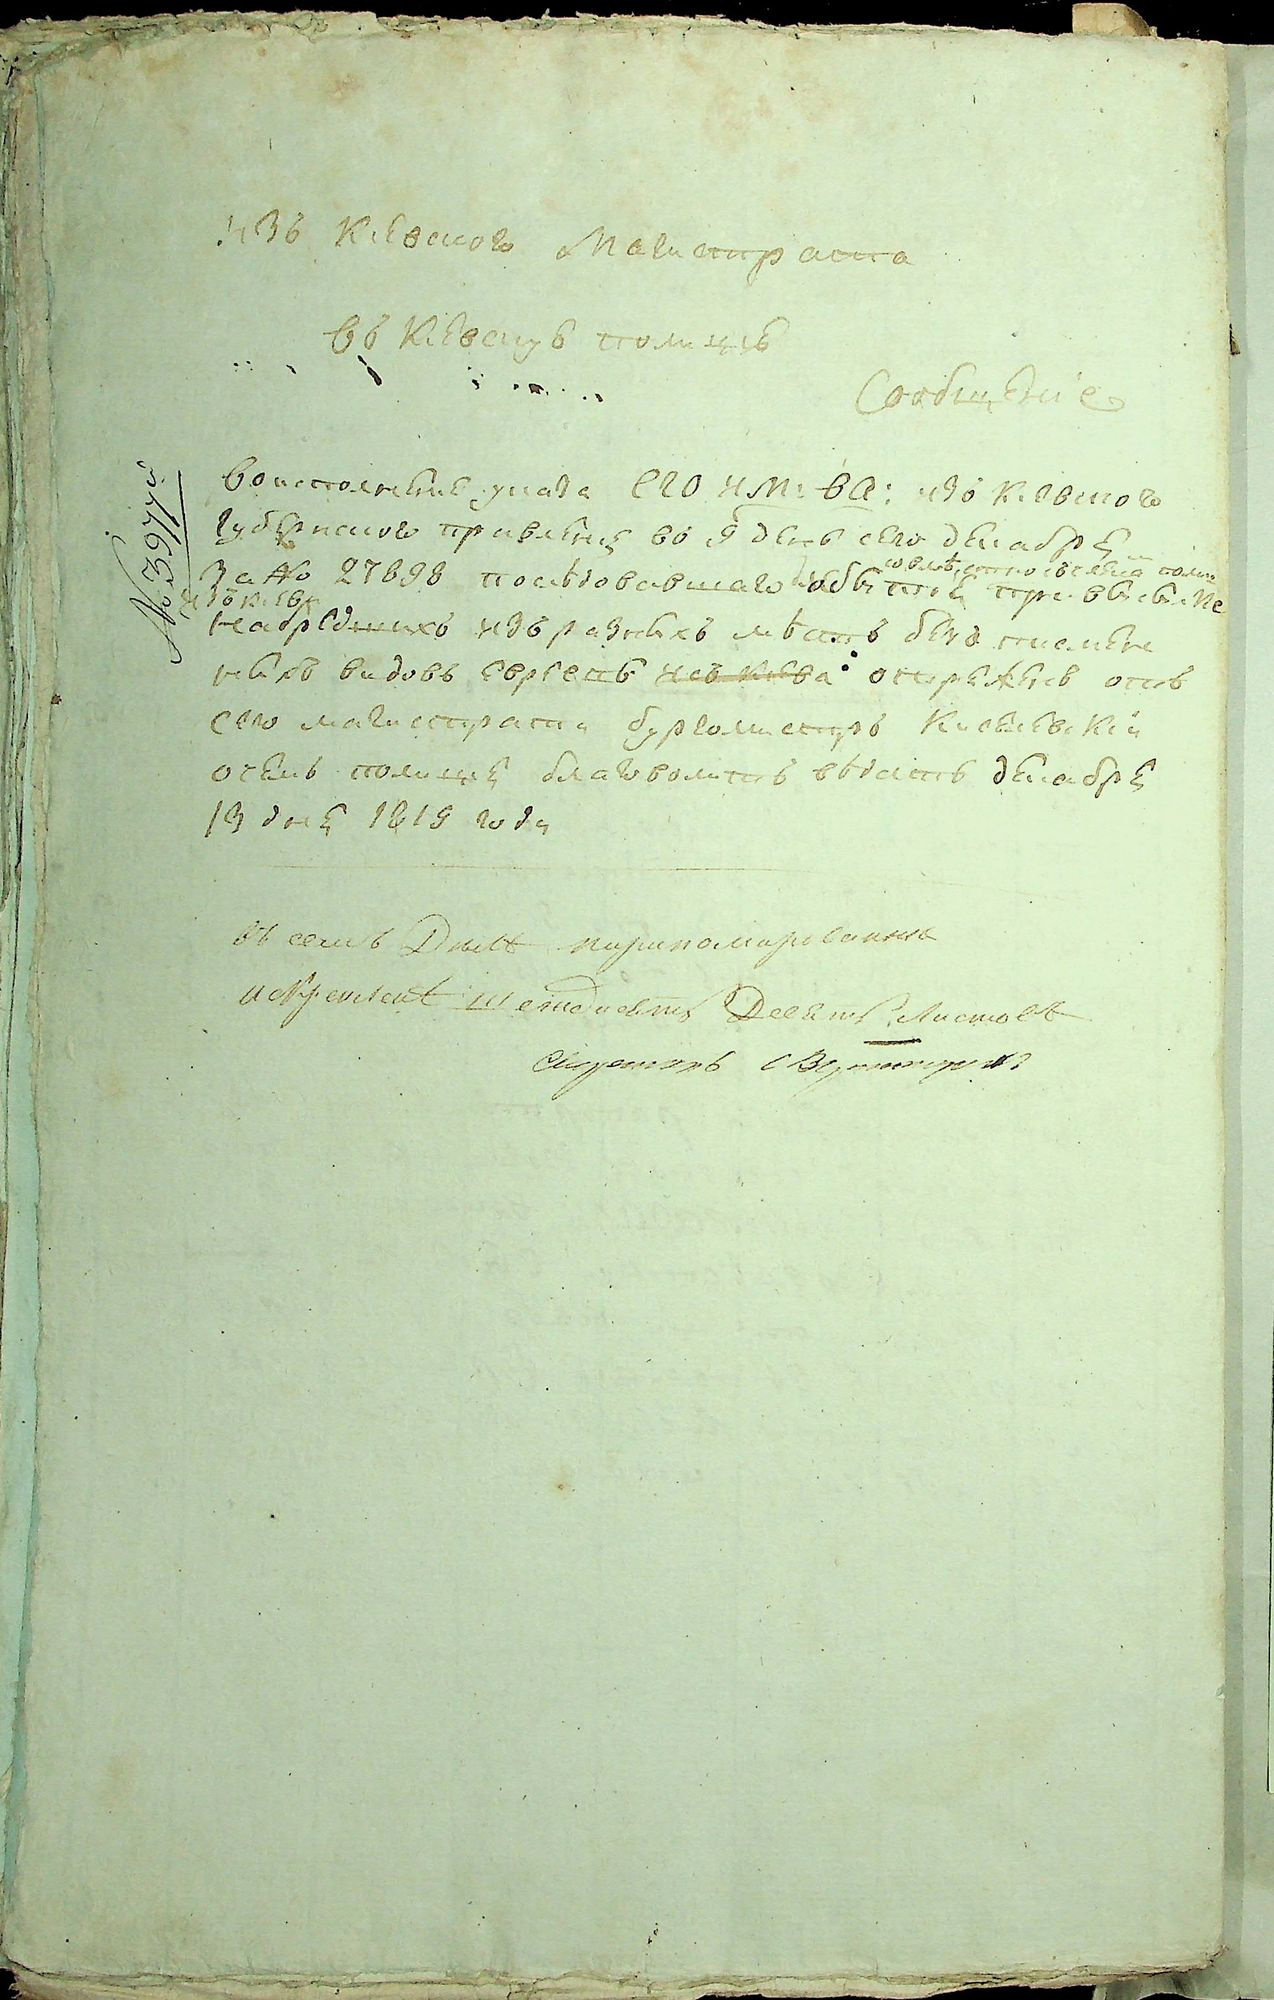 изъ Киевского Магистрата
въ Киевскую полицию
Сообщение
№ 3977й
Воисполнение указа ЕГО ИМ: ВА: изъ Киевского
Губернского правления въ 9 день сего декабря
За № 27898 последовавшаго
совместно съ полици
при высылке
изъ Киева
изъ разныхъ местъ безъ писмен
ныхъ видовъ евреевъ изъ Киева отряженъ отъ
сего магистрата бургомистръ Киселевский
о чемъ полиция благоволитъ ведать декабря
13 дня 1819 года
въ семъ Деле пронумерованныхъ
и скрепленныхъ шестдесятъ Девять Листовъ
Секретарь